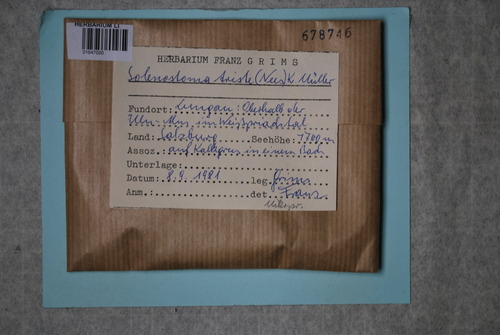 HERBARIUM LI
678746
HERBARIUM FRANZ GRIMS
Solenostoma triste (Nees) K. Müller
Fundort: Lungau: Oberhalb der
im Weißpriachtal
Land: Salzburg Seehöhe: 1700 m
Assoz.: auf Kalkgrus in einem Bach
Unterlage:
Datum: 8.9.1981 leg. Grims
Anm.: det. Franz